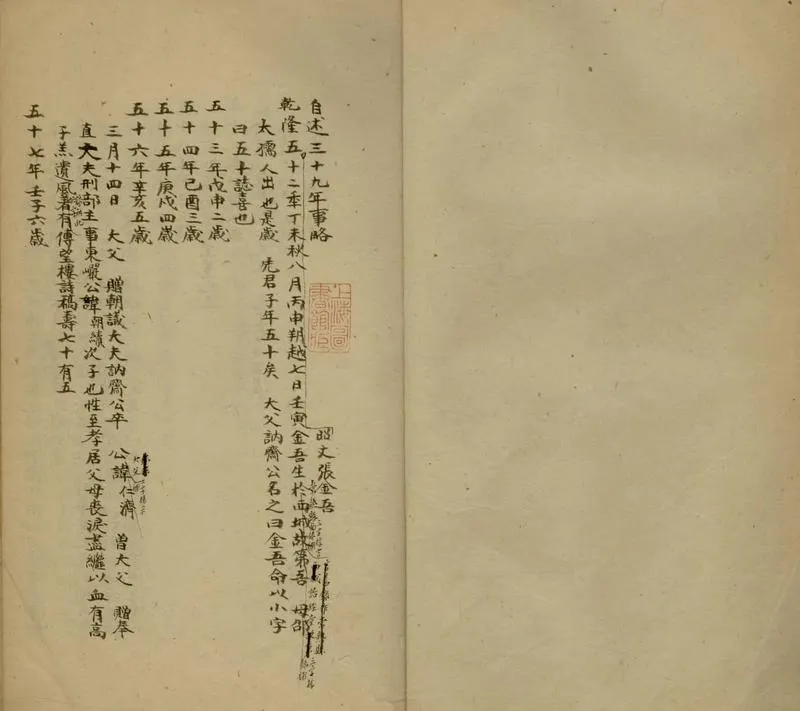 自述三十九年事略
昭文張金吾
乾隆五十二年丁未秋八月丙申朔越七日壬寅金吾生於西城故第吾母邵
太孺人出也是歲 先君子年五十矣 大父訥齋公名之曰金吾命以小字
曰五十誌喜也
五十三年戊申二歲
五十四年己酉三歲
五十五年庚戌四歲
五十六年辛亥五歲
三月十四日 大父 贈朝議大夫訥齋公卒 公諱仁濟 曾大父 贈奉
直大夫刑部主事東巖公諱朝績次子也性至孝居父母喪淚盡繼以血有高
子羔遺風著有傳望樓詩稿壽七十有五
五十七年壬子六歲
上海圖
書館藏